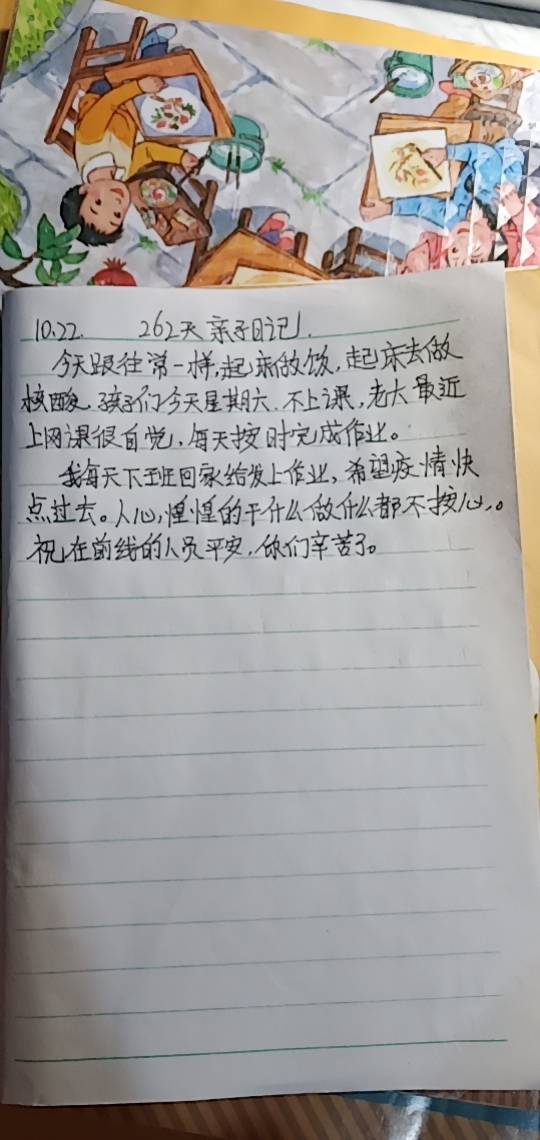 10.22. 262天亲子日记.
今天跟往常一样,起床做饭,起床去做
核酸.孩子们今天星期六.不上课,老大最近
上网课很自觉,每天按时完成作业。
我每天下班回家给发上作业,希望疫情快
点过去。人心惶惶的干什么做什么都不按心。
祝在前线的人员平安,你们辛苦了。